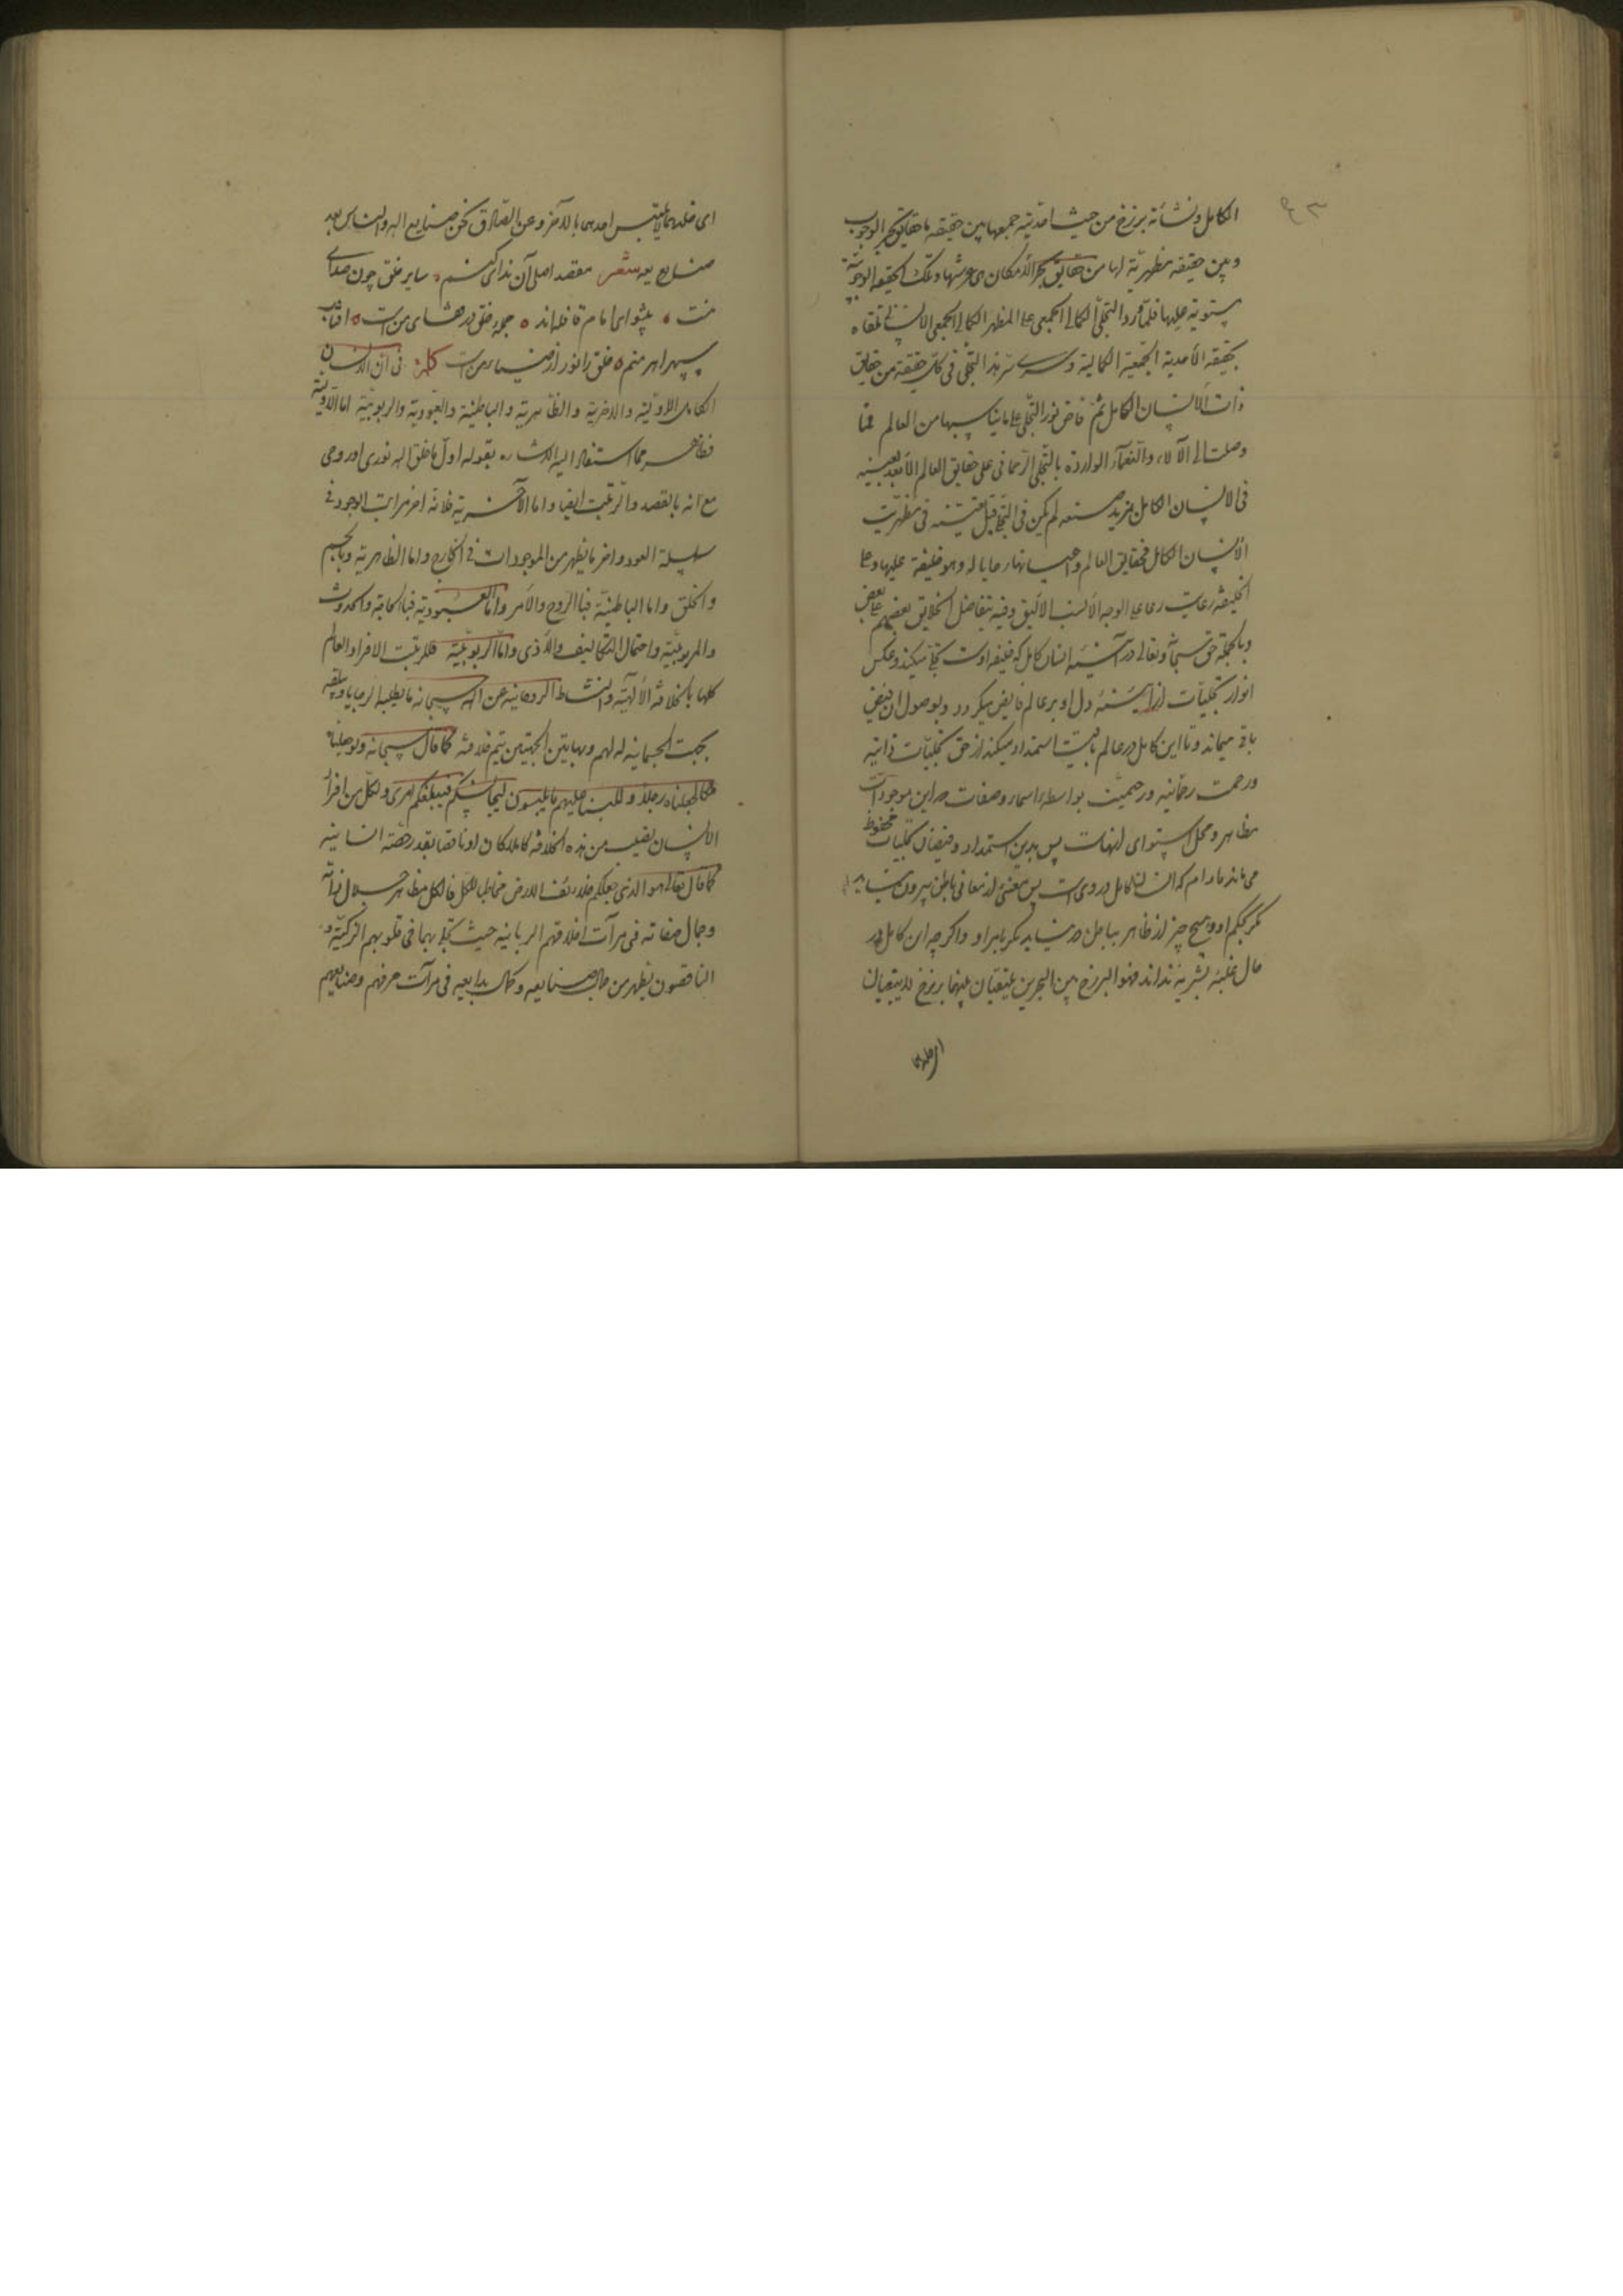 الکامل ونشأته برزخ من حيث احدية جمعها بين حقيقة ما حقايق بحر الوجوب
وبين حقيقة مظهرية لها من حقايق بحر الامكان هى عرشها وتلك الحقيقة الوجوبية
مستوية عليها فلما ورد التجلى الکمالى الجمعى على المظهر الکمالى الجمعى الانسانى تلقاه
بحقيقة الأحدية الجمعية الکمالية وسرى سر هذا التجلى فى کل حقيقة من حقايق
ذات الانسان الکامل ثم فاض نور التجلى على ما يناسبها من العالم فما
وصلت الى الآلاء والنعماء الواردة بالتجلى الرحمانى على حقايق العالم الا بعد تعينه
فى الانسان الکامل بمزيد صنعة لم يکن فى التجلى قبل تعينه فى مظهرية
الانسان الکامل فحقايق العالم واعيانها رعايا له وهو خليفة عليها وعلى
الخليفة رعاية رعاياه على الوجه الأنسب الأليق وفيه يتفاضل الخلايق بعضهم على بعض
وبالجملة حق سبحانه وتعالى در آئينه دل انسان کامل که خليفه اوست تجلى ميکند وعکس
انوار تجليات از آئينه دل او بر عالم فايض ميکردد وبوصول آن فيض
باقى ميماند وتا اين کامل در عالم باقيست استمداد ميکند از حق تجليات ذاتيه
ورحمت رحمانيه ورحيميت بواسطه اسماء وصفات که اين موجودات
مظاهر ومحل استواى انهاست پس بدين استمداد وفيضان تجليات محفوظ
مى ماند مادام که انسان کامل در وى است پس معنى از معانى باطن بيرون نيايد
مکر بحکم او وهيچ چيز از ظاهر بباطن در نيايد مکر بامر او واکر چه ان کامل در
حال غلبه بشريه نداند فهو البرزخ بين البحرين يلتقيان بينهما برزخ لا يبغيان
اى فلهما
اى فلهما لا يلتبس احدهما بالآخر وعن الصادق نحن صنايع الله والناس بعد
صنايع له شعر مقصد اصلى آن نداى کنم سایر خلق چون صداى
منست پيشواى امام قافله اند جمله خلق در قفاى من است افتاب
سپهر امر منم خلق را نور از ضياء من است کلمة فى ان الانسان
الکامل الاولية والاخرية والظاهرية والباطنية والعبودية والربوبية اما الاولية
فظاهر مما استفاد اليه الاشارة بقوله اول ما خلق الله نورى او روحى
مع انه بالقصد والرتبة ايضا واما الآخرية فلانه اخر مراتب الوجود فى
سلسلة العود واخر ما يظهر من الموجودات فى الخارج واما الظاهرية وبالجسم
والخلق واما الباطنية فبالروح والأمر واما العبودية فبالحاجة والحدوث
والمربوبية واحتمال التکاليف والاذى واما الربوبية فلتربية الافراد العالم
کلها بالخلافة الألهية والنشاة الروحانية عن الله سبحانه ما يطلبه الرعايا وبلغه
بجهت الجسمانية له لهم وبهاتين الجهتين يتم خلافته کما قال سبحانه ولو جعلناه
ملکا لجعلناه رجلا وللبسنا عليهم ما يلبسون ليجانسکم فيبلغکم امرى ولکل من افراد
الانسان نصيب من هذه الخلافة کاملا کان او ناقصا بقدر حصته انسانيته
کما قال تعالى هو الذى جعلکم خلائف الارض مخاطبا للکل فالکمل مظاهر جلال ذاته
وجمال صفاته فى مرآت اخلاقهم الربانية حيث تجلى بهما فى قلوبهم الزکية و
الناقصون يظهر من جمال صنايعه وکمال بدايعه فى مرآت حرفهم وصنايعهم